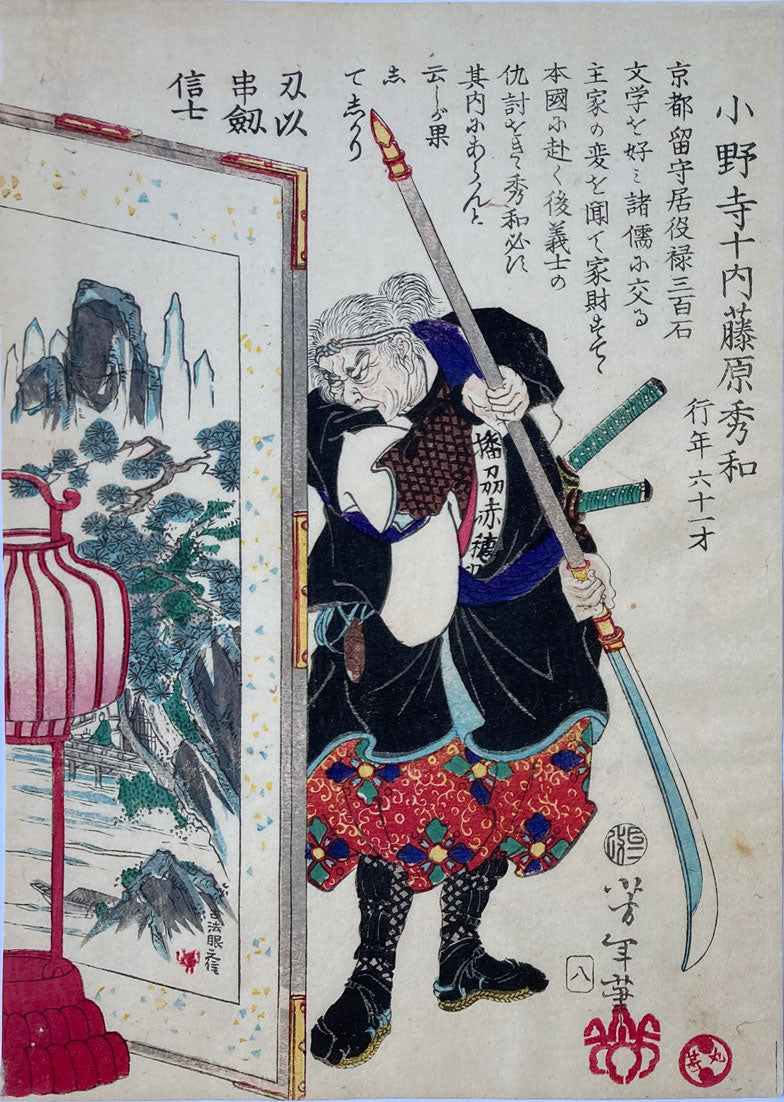 小野寺十内藤原秀和
行年六十一才
京都留守居役禄三百石
文学を好ミ諸儒に交る
主家の変を聞て家財をすて
本國に赴く後義士の
仇討をきゝ秀和必ず
其内にあらんと
云しが果
し
てしかり
刃以
串劔
信士
播刕赤穂
法眼元信
芳年筆
八
丸
甚